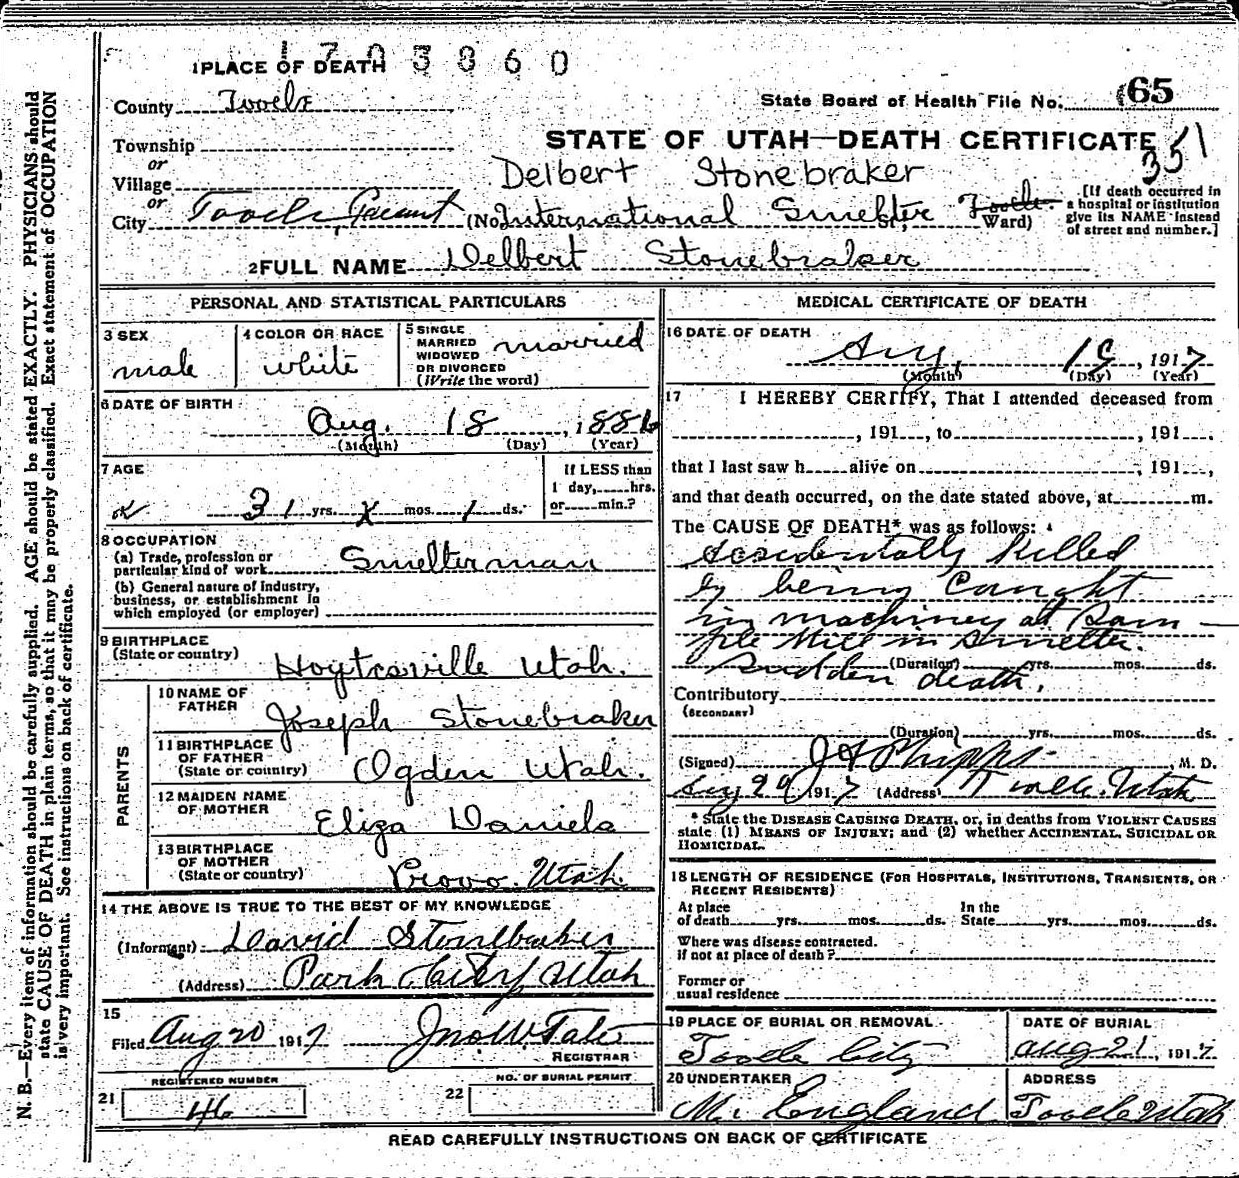 1703860
1 PLACE OF DEATH
County Tooele
State Board of Health File No. 65
Township
or
STATE OF UTAH—DEATH CERTIFICATE
351
Village
or
Delbert Stonebraker
City Tooele, (No. International Smelter St., Tooele Ward)
[If death occurred in a hospital or institution give its NAME instead of street and number.]
2 FULL NAME Delbert Stonebraker
PERSONAL AND STATISTICAL PARTICULARS
3 SEX
male
4 COLOR OR RACE
white
5 SINGLE
MARRIED
WIDOWED
OR DIVORCED
(Write the word)
married
6 DATE OF BIRTH
Aug. 18, 1886
(Month) (Day) (Year)
7 AGE
OK 31 yrs. X mos. 1 ds.
If LESS than
1 day,.....hrs.
or.....min.?
8 OCCUPATION
(a) Trade, profession or
particular kind of work Smelterman
(b) General nature of industry,
business, or establishment in
which employed (or employer)
9 BIRTHPLACE
(State or country) Hoytsville Utah.
PARENTS
10 NAME OF
FATHER Joseph Stonebraker
11 BIRTHPLACE
OF FATHER
(State or country) Ogden Utah.
12 MAIDEN NAME
OF MOTHER Eliza Daniels
13 BIRTHPLACE
OF MOTHER
(State or country) Provo. Utah.
14 THE ABOVE IS TRUE TO THE BEST OF MY KNOWLEDGE
(Informant) David Stonebraker
(Address) Park City Utah
15
Filed Aug 20 1917 Jno. W. Tate
REGISTRAR
21 REGISTERED NUMBER
46
22 NO. OF BURIAL PERMIT
MEDICAL CERTIFICATE OF DEATH
16 DATE OF DEATH
Aug. 19, 1917
(Month) (Day) (Year)
17 I HEREBY CERTIFY, That I attended deceased from
, 191...., to , 191....
that I last saw h alive on , 191....,
and that death occurred, on the date stated above, at m.
The CAUSE OF DEATH* was as follows:
Accidentally Killed
by being Caught
in machinery at
Mill in Smelter.
(Duration) yrs. mos. ds.
Sudden death.
Contributory
(SECONDARY)
(Duration) yrs. mos. ds.
(Signed) J A Phipps, M. D.
Aug 20 1917 (Address) Tooele. Utah
* State the DISEASE CAUSING DEATH, or, in deaths from VIOLENT CAUSES
state (1) MEANS OF INJURY; and (2) whether ACCIDENTAL, SUICIDAL OR
HOMICIDAL.
18 LENGTH OF RESIDENCE (FOR HOSPITALS, INSTITUTIONS, TRANSIENTS, OR
RECENT RESIDENTS)
At place
of death yrs. mos. ds.
In the
State yrs. mos. ds.
Where was disease contracted.
if not at place of death?
Former or
usual residence
19 PLACE OF BURIAL OR REMOVAL
Tooele City
DATE OF BURIAL
Aug 21, 1917
20 UNDERTAKER
M. England
ADDRESS
Tooele Utah
READ CAREFULLY INSTRUCTIONS ON BACK OF CERTIFICATE
N. B.—Every item of information should be carefully supplied. AGE should be stated EXACTLY. PHYSICIANS should
state CAUSE OF DEATH in plain terms, so that it may be properly classified. Exact statement of OCCUPATION
is very important. See instructions on back of certificate.